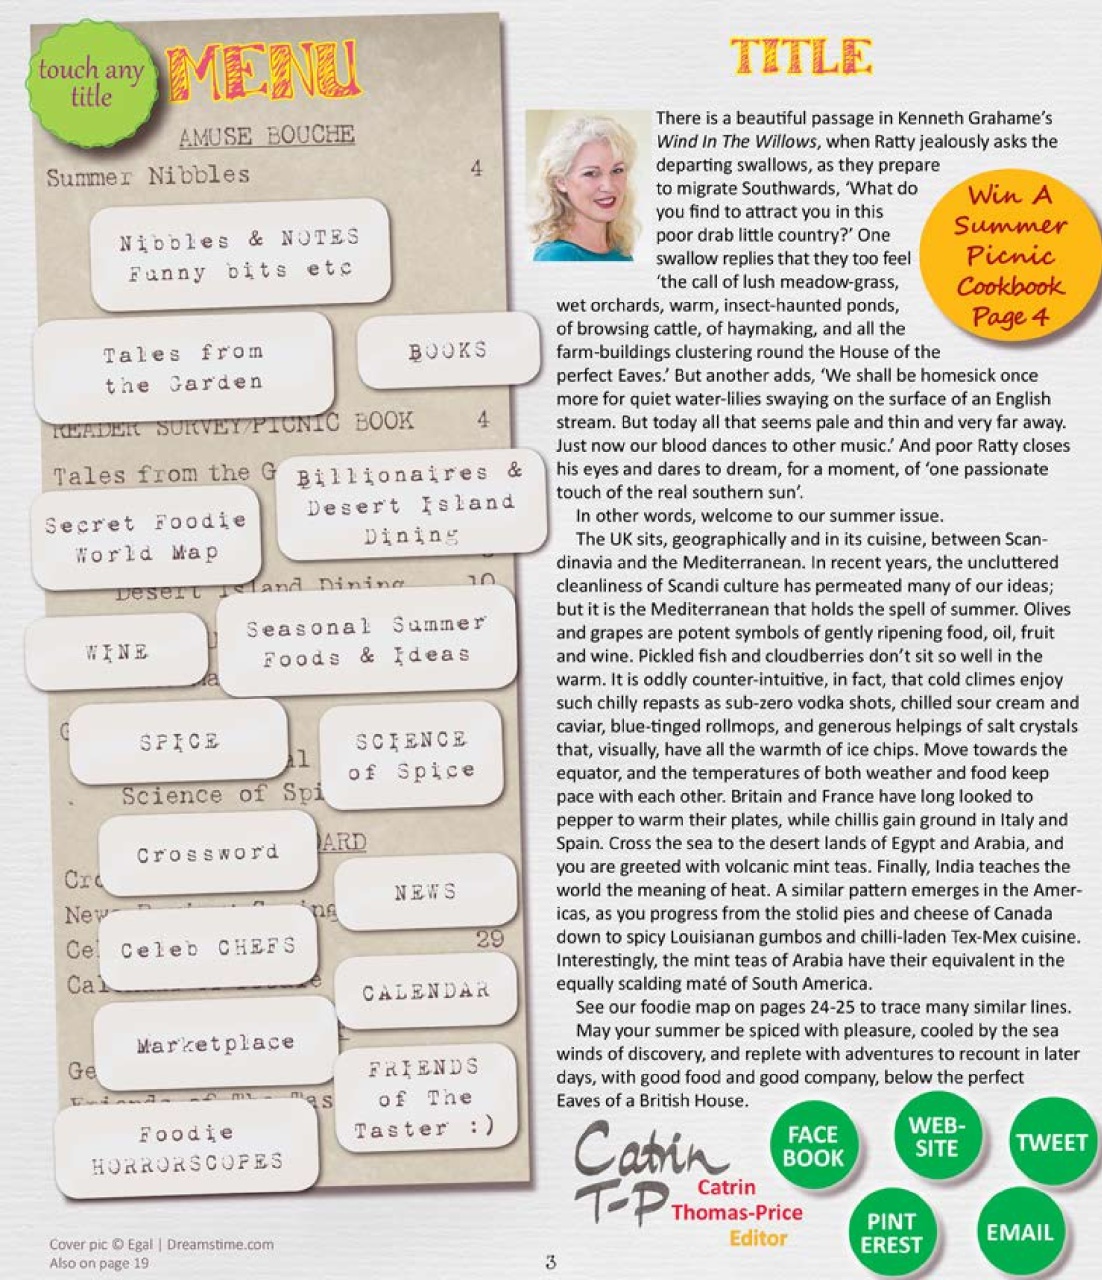 touch any
title
MENU
AMUSE BOUCHE
Summer Nibbles 4
Nibbles & NOTES
Funny bits etc
Tales from
the Garden
BOOKS
READER SURVEY/PICNIC BOOK 4
Tales from the G
Billionaires &
Desert Island
Dining
Secret Foodie
World Map
Desert Island Dining 10
WINE
Seasonal Summer
Foods & Ideas
SPICE
SCIENCE
of Spice
Science of Spi
Crossword
NEWS
Celeb CHEFS
29
CALENDAR
Marketplace
FRIENDS
of The
Taster :)
Foodie
HORRORSCOPES
Cover pic © Egal | Dreamstime.com
Also on page 19
TITLE
There is a beautiful passage in Kenneth Grahame's
Wind In The Willows, when Ratty jealously asks the
departing swallows, as they prepare
to migrate Southwards, ‘What do
you find to attract you in this
poor drab little country?’ One
swallow replies that they too feel
‘the call of lush meadow-grass,
wet orchards, warm, insect-haunted ponds,
of browsing cattle, of haymaking, and all the
farm-buildings clustering round the House of the
perfect Eaves.’ But another adds, ‘We shall be homesick once
more for quiet water-lilies swaying on the surface of an English
stream. But today all that seems pale and thin and very far away.
Just now our blood dances to other music.’ And poor Ratty closes
his eyes and dares to dream, for a moment, of ‘one passionate
touch of the real southern sun’.
In other words, welcome to our summer issue.
The UK sits, geographically and in its cuisine, between Scan-
dinavia and the Mediterranean. In recent years, the uncluttered
cleanliness of Scandi culture has permeated many of our ideas;
but it is the Mediterranean that holds the spell of summer. Olives
and grapes are potent symbols of gently ripening food, oil, fruit
and wine. Pickled fish and cloudberries don’t sit so well in the
warm. It is oddly counter-intuitive, in fact, that cold climes enjoy
such chilly repasts as sub-zero vodka shots, chilled sour cream and
caviar, blue-tinged rollmops, and generous helpings of salt crystals
that, visually, have all the warmth of ice chips. Move towards the
equator, and the temperatures of both weather and food keep
pace with each other. Britain and France have long looked to
pepper to warm their plates, while chillis gain ground in Italy and
Spain. Cross the sea to the desert lands of Egypt and Arabia, and
you are greeted with volcanic mint teas. Finally, India teaches the
world the meaning of heat. A similar pattern emerges in the Amer-
icas, as you progress from the stolid pies and cheese of Canada
down to spicy Louisianan gumbos and chilli-laden Tex-Mex cuisine.
Interestingly, the mint teas of Arabia have their equivalent in the
equally scalding maté of South America.
See our foodie map on pages 24-25 to trace many similar lines.
May your summer be spiced with pleasure, cooled by the sea
winds of discovery, and replete with adventures to recount in later
days, with good food and good company, below the perfect
Eaves of a British House.
Win A
Summer
Picnic
Cookbook
Page 4
Catrin
T-P
Catrin
Thomas-Price
Editor
FACE
BOOK
WEB-
SITE
TWEET
PINT
EREST
EMAIL
3